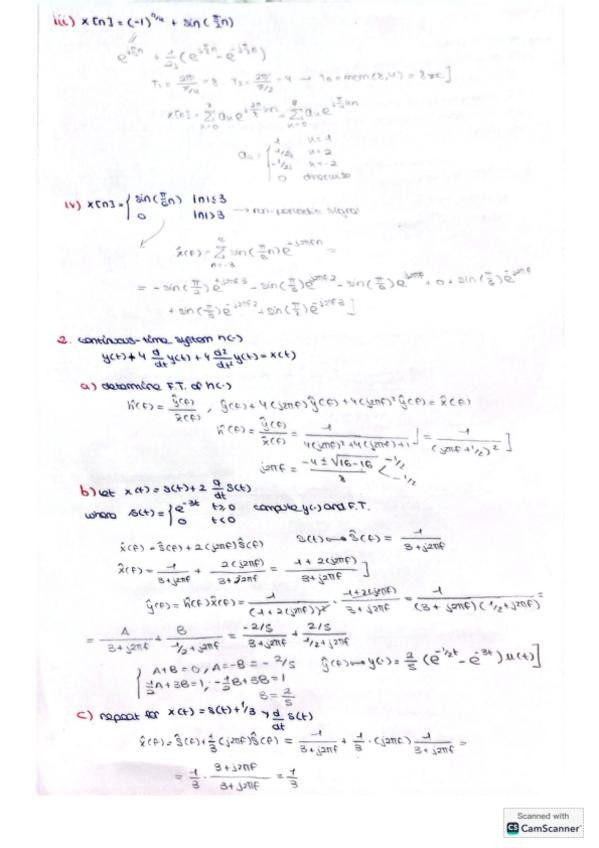 iii) x[n] = (-1)^{n/4} + sin(π/2 n)
e^{jπ/4 n} + 1/2j (e^{jπ/2 n} - e^{-jπ/2 n})
T₁ = 2π/(π/4) = 8 T₂ = 2π/(π/2) = 4 → T₀ = mcm(8,4) = 8 sec]
x[n] = Σ aₖ e^{j 2π/8 kn} = Σ aₖ e^{jπ/4 kn}
aₖ = { 1 k=1
1/2j k=2
-1/2j k=-2
0 otherwise
iv) x[n] = { sin(π/6 n) |n| ≤ 3
0 |n| > 3 → non-periodic signal
x̂(f) = Σ_{n=-3} sin(π/6 n) e^{-j2πfn} =
= -sin(π/2) e^{j2πf3} - sin(π/3) e^{j2πf2} - sin(π/6) e^{j2πf} + 0 + sin(π/6) e^{-j2πf}
+ sin(π/3) e^{-j2πf2} + sin(π/2) e^{-j2πf3} ]
2. continuous-time system h(·)
y(t) + 4 d/dt y(t) + 4 d²/dt² y(t) = x(t)
a) determine F.T. of h(·)
ĥ(f) = ŷ(f)/x̂(f) , ŷ(f) + 4(j2πf)ŷ(f) + 4(j2πf)² ŷ(f) = x̂(f)
ĥ(f) = ŷ(f)/x̂(f) = 1/(4(j2πf)² + 4(j2πf) + 1) = 1/(j2πf + 1/2)² ]
j2πf = (-4 ± √(16-16))/8 < -1/2 -1/2
b) let x(t) = s(t) + 2 d/dt s(t)
where s(t) = { e^{-3t} t ≥ 0 compute y(·) and F.T.
0 t < 0
x̂(f) = ŝ(f) + 2(j2πf)ŝ(f) s(t) ↔ ŝ(f) = 1/(3+j2πf)
x̂(f) = 1/(3+j2πf) + 2(j2πf)/(3+j2πf) = (1+2(j2πf))/(3+j2πf) ]
ŷ(f) = ĥ(f)x̂(f) = 1/(1+2(j2πf))² · (1+2(j2πf))/(3+j2πf) = 1/((3+j2πf)(1/2+j2πf)) =
= A/(3+j2πf) + B/(1/2+j2πf) = (-2/5)/(3+j2πf) + (2/5)/(1/2+j2πf)
{ A+B = 0, A = -B = -2/5 ŷ(f) ↔ y(·) = 2/5 (e^{-1/2t} - e^{-3t}) u(t) ]
1/2A + 3B = 1, -1/2B + 3B = 1
B = 2/5
c) repeat for x(t) = s(t) + 1/3 d/dt s(t)
x̂(f) = ŝ(f) + 1/3 (j2πf)ŝ(f) = 1/(3+j2πf) + 1/3 · (j2πf) 1/(3+j2πf) =
= 1/3 · (3+j2πf)/(3+j2πf) = 1/3
Scanned with
CS CamScanner